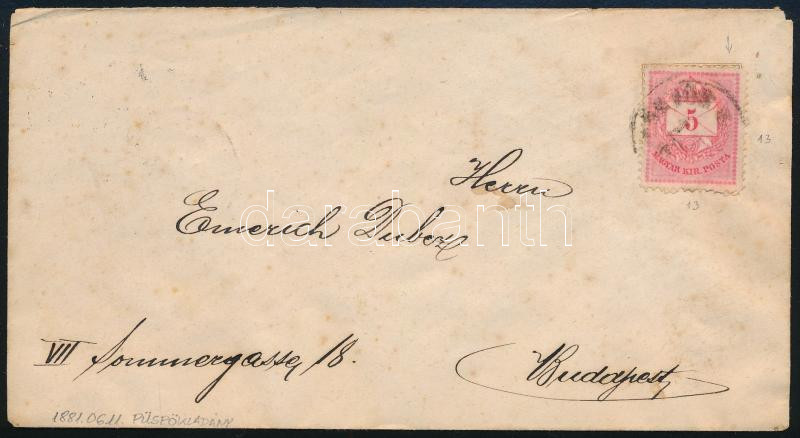 5
MAGYAR KIR. POSTA
13
13
Herrn
Emerich
darabanth
VII Sommergasse, 18.
Budapest
1881.06.11. PÜSPÖKLADÁNY